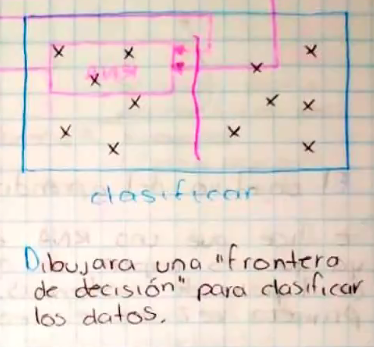 clasificar
Dibujara una "frontera
de decisión" para clasificar
los datos.